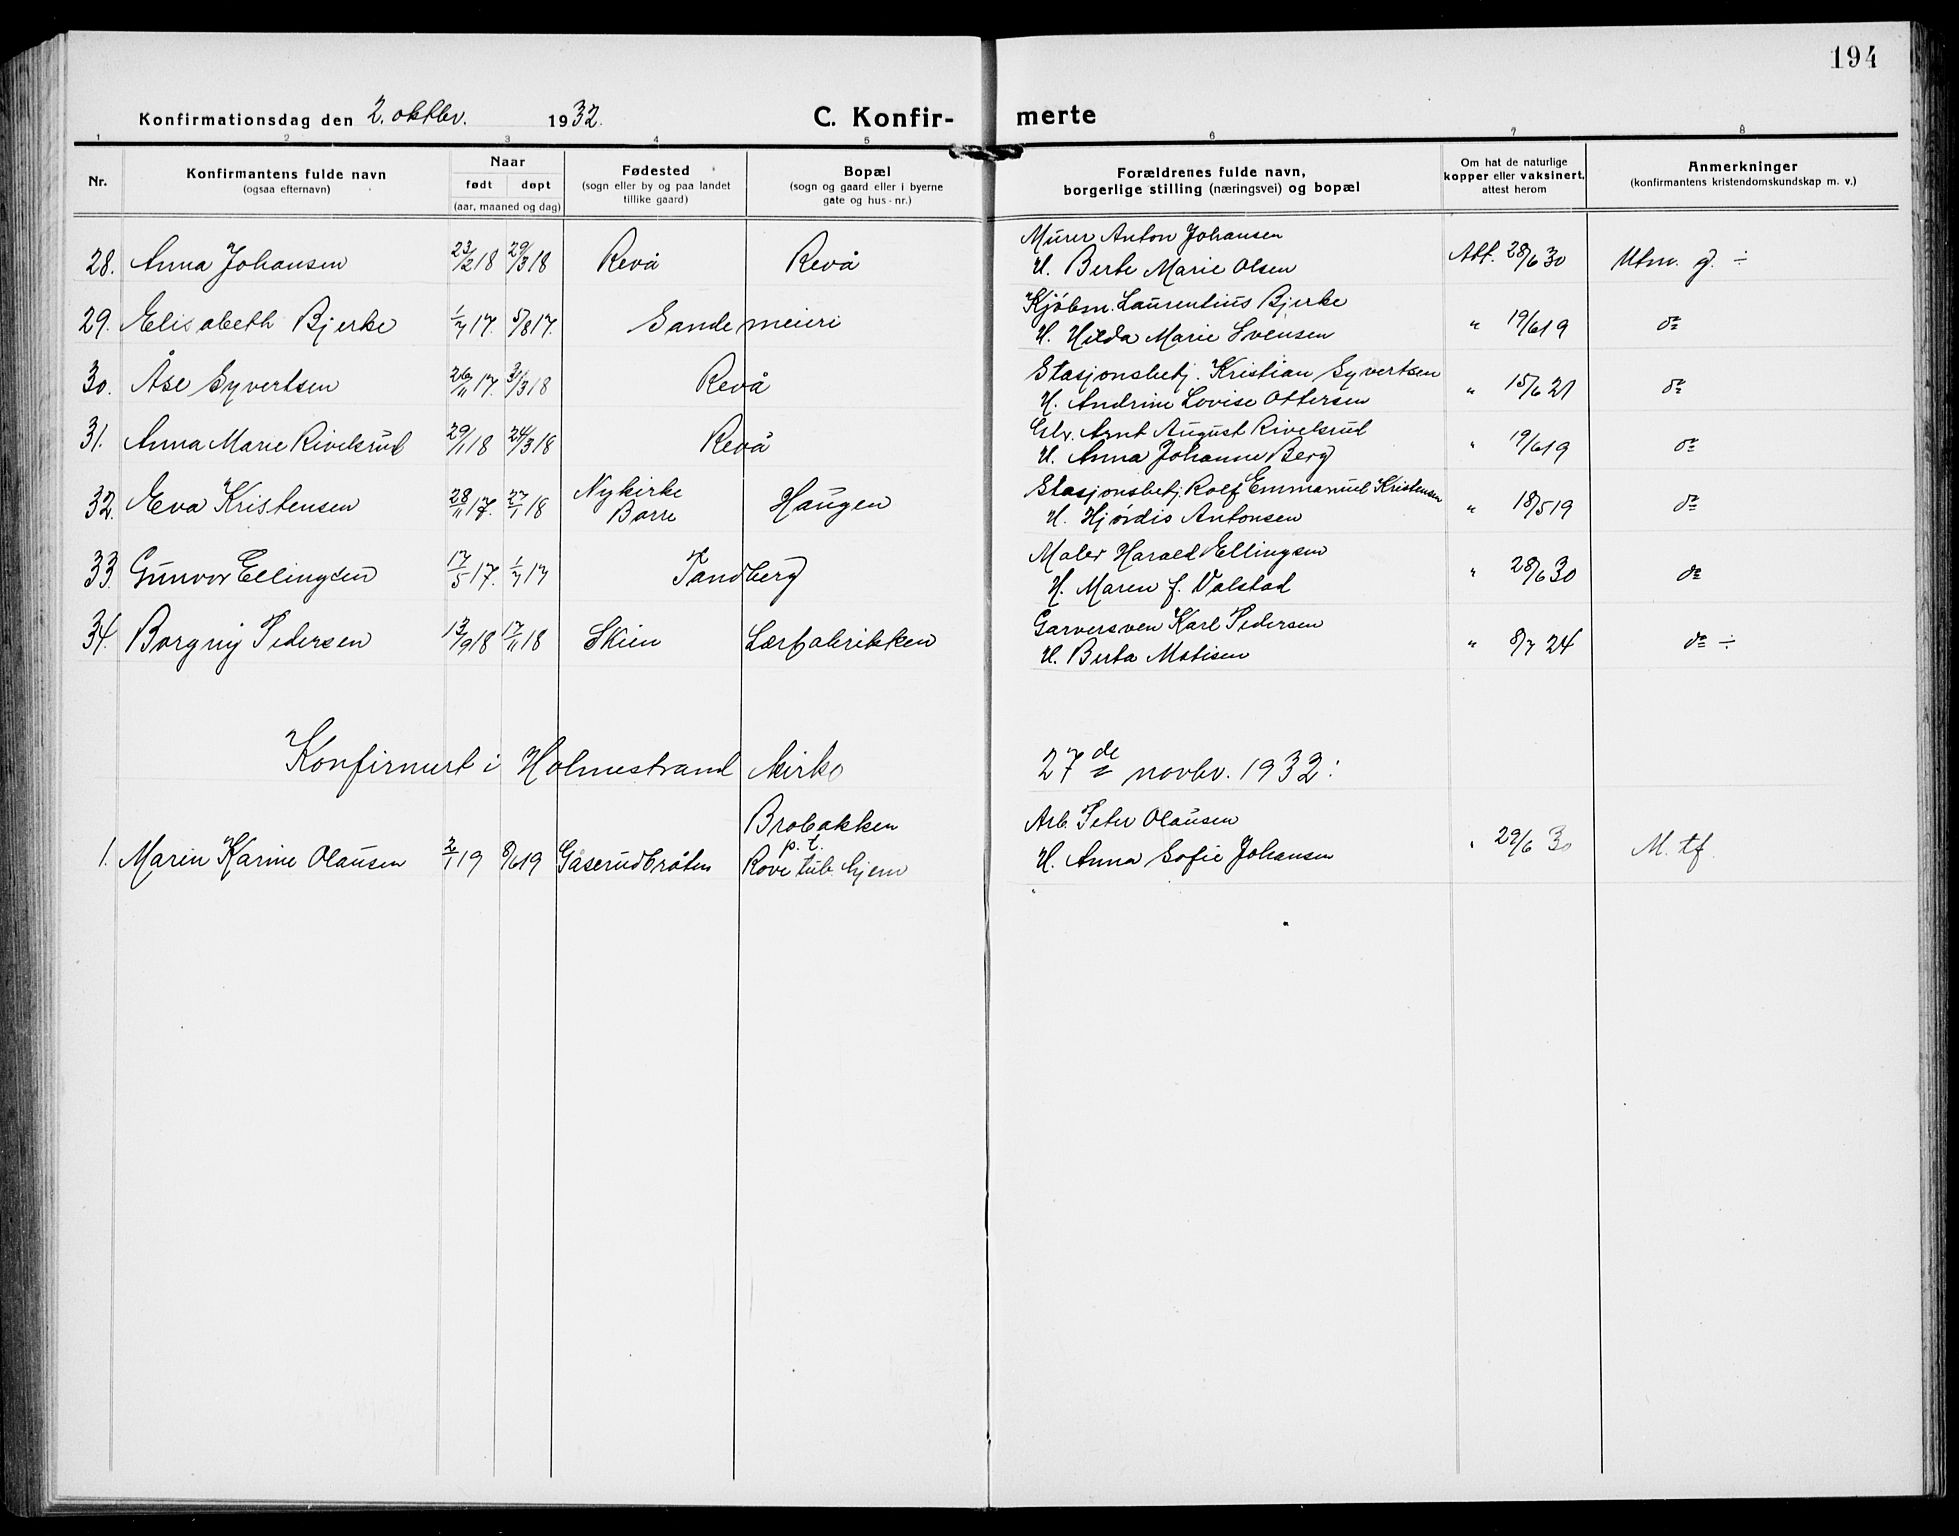 194
Konfirmationsdag den 2. oktbr. 1932. C. Konfir- merte
1 2 3 4 5 6 7 8
Nr. Konfirmantens fulde navn (ogsaa efternavn) Naar født døpt (aar, maaned og dag) Fødested (sogn eller by og paa landet tillike gaard) Bopæl (sogn og gaard eller i byerne gate og hus-nr.) Forældrenes fulde navn, borgerlige stilling (næringsvei) og bopæl Om hat de naturlige kopper eller vaksinert, attest herom Anmerkninger (konfirmantens kristendomskundskap m. v.)
Murer Anton Johansen
28. Anna Johansen 23/2 18 29/3 18 Revå Revå H. Berte Marie Olsen Att. 28/6 30 Utm. g. ÷
Kjøbm. Laurentius Bjerke
29. Elisabeth Bjerke 1/7 17. 5/8 17. Sande meieri H. Hilda Marie Svensen " 19/6 19 do
Stasjonsbetj. Kristian Syvertsen
30. Åse Syvertsen 26/11 17. 31/3 18 Revå H. Andrine Lovise Ottersen " 15/6 21 do
Arnt August Rivelsrud
31. Anna Marie Rivelsrud 29/1 18 24/3 18 Revå H. Anna Johanne Berg " 19/6 19 do
Stasjonsbetj. Rolf Emmanuel Kristensen
32. Eva Kristensen 28/11 17. 27/1 18 Nykirke Borre Haugen H. Hjørdis Antonsen " 18/5 19 do
Maler Harald Ellingsen
33. Gunvor Ellingsen 17/5 17. 1/7 17 Tandberg H. Maren f. Valstad " 28/6 30 do
Garversven Karl Pedersen
34. Borgny Pedersen 13/9 18 17/11 18 Skien Lærfabrikken H. Berta Matisen " 8/7 24 do ÷
Konfirmert i Holmestrand kirke 27de novbr. 1932:
Brobakken Arb. Peter Olausen
p. t.
1. Marin Karine Olausen 2/1 19 8/6 19 Gåserudbråten Rove tub. hjem H. Anna Sofie Johansen " 29/6 30 M. tf.